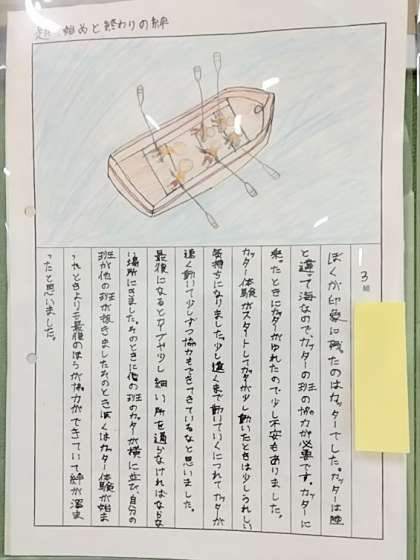 始めと終わりの絆
3組
ぼくが印象に残ったのはカッターでした。カッターは陸
と違って海なので、カッターの班の協力が必要です。カッターに
乗ったときにカッターがゆれたので少し不安もありました。
カッター体験がスタートしてカッターが少し動いたときは少しうれしい
気持ちになりました。少し遠くまで動いていくにつれてカッターが
速く動いて少しずつ協力もできてきているなと思いました。
最後になるとカーブや少し細い所を通らなければならな
い場所にきました。そのときに他の班のカッターが横に並び、自分の
班が他の班が抜きましたそのときぼくはカッター体験が始ま
ったときよりも最後のほうが協力ができていて絆が深ま
ったと思いました。